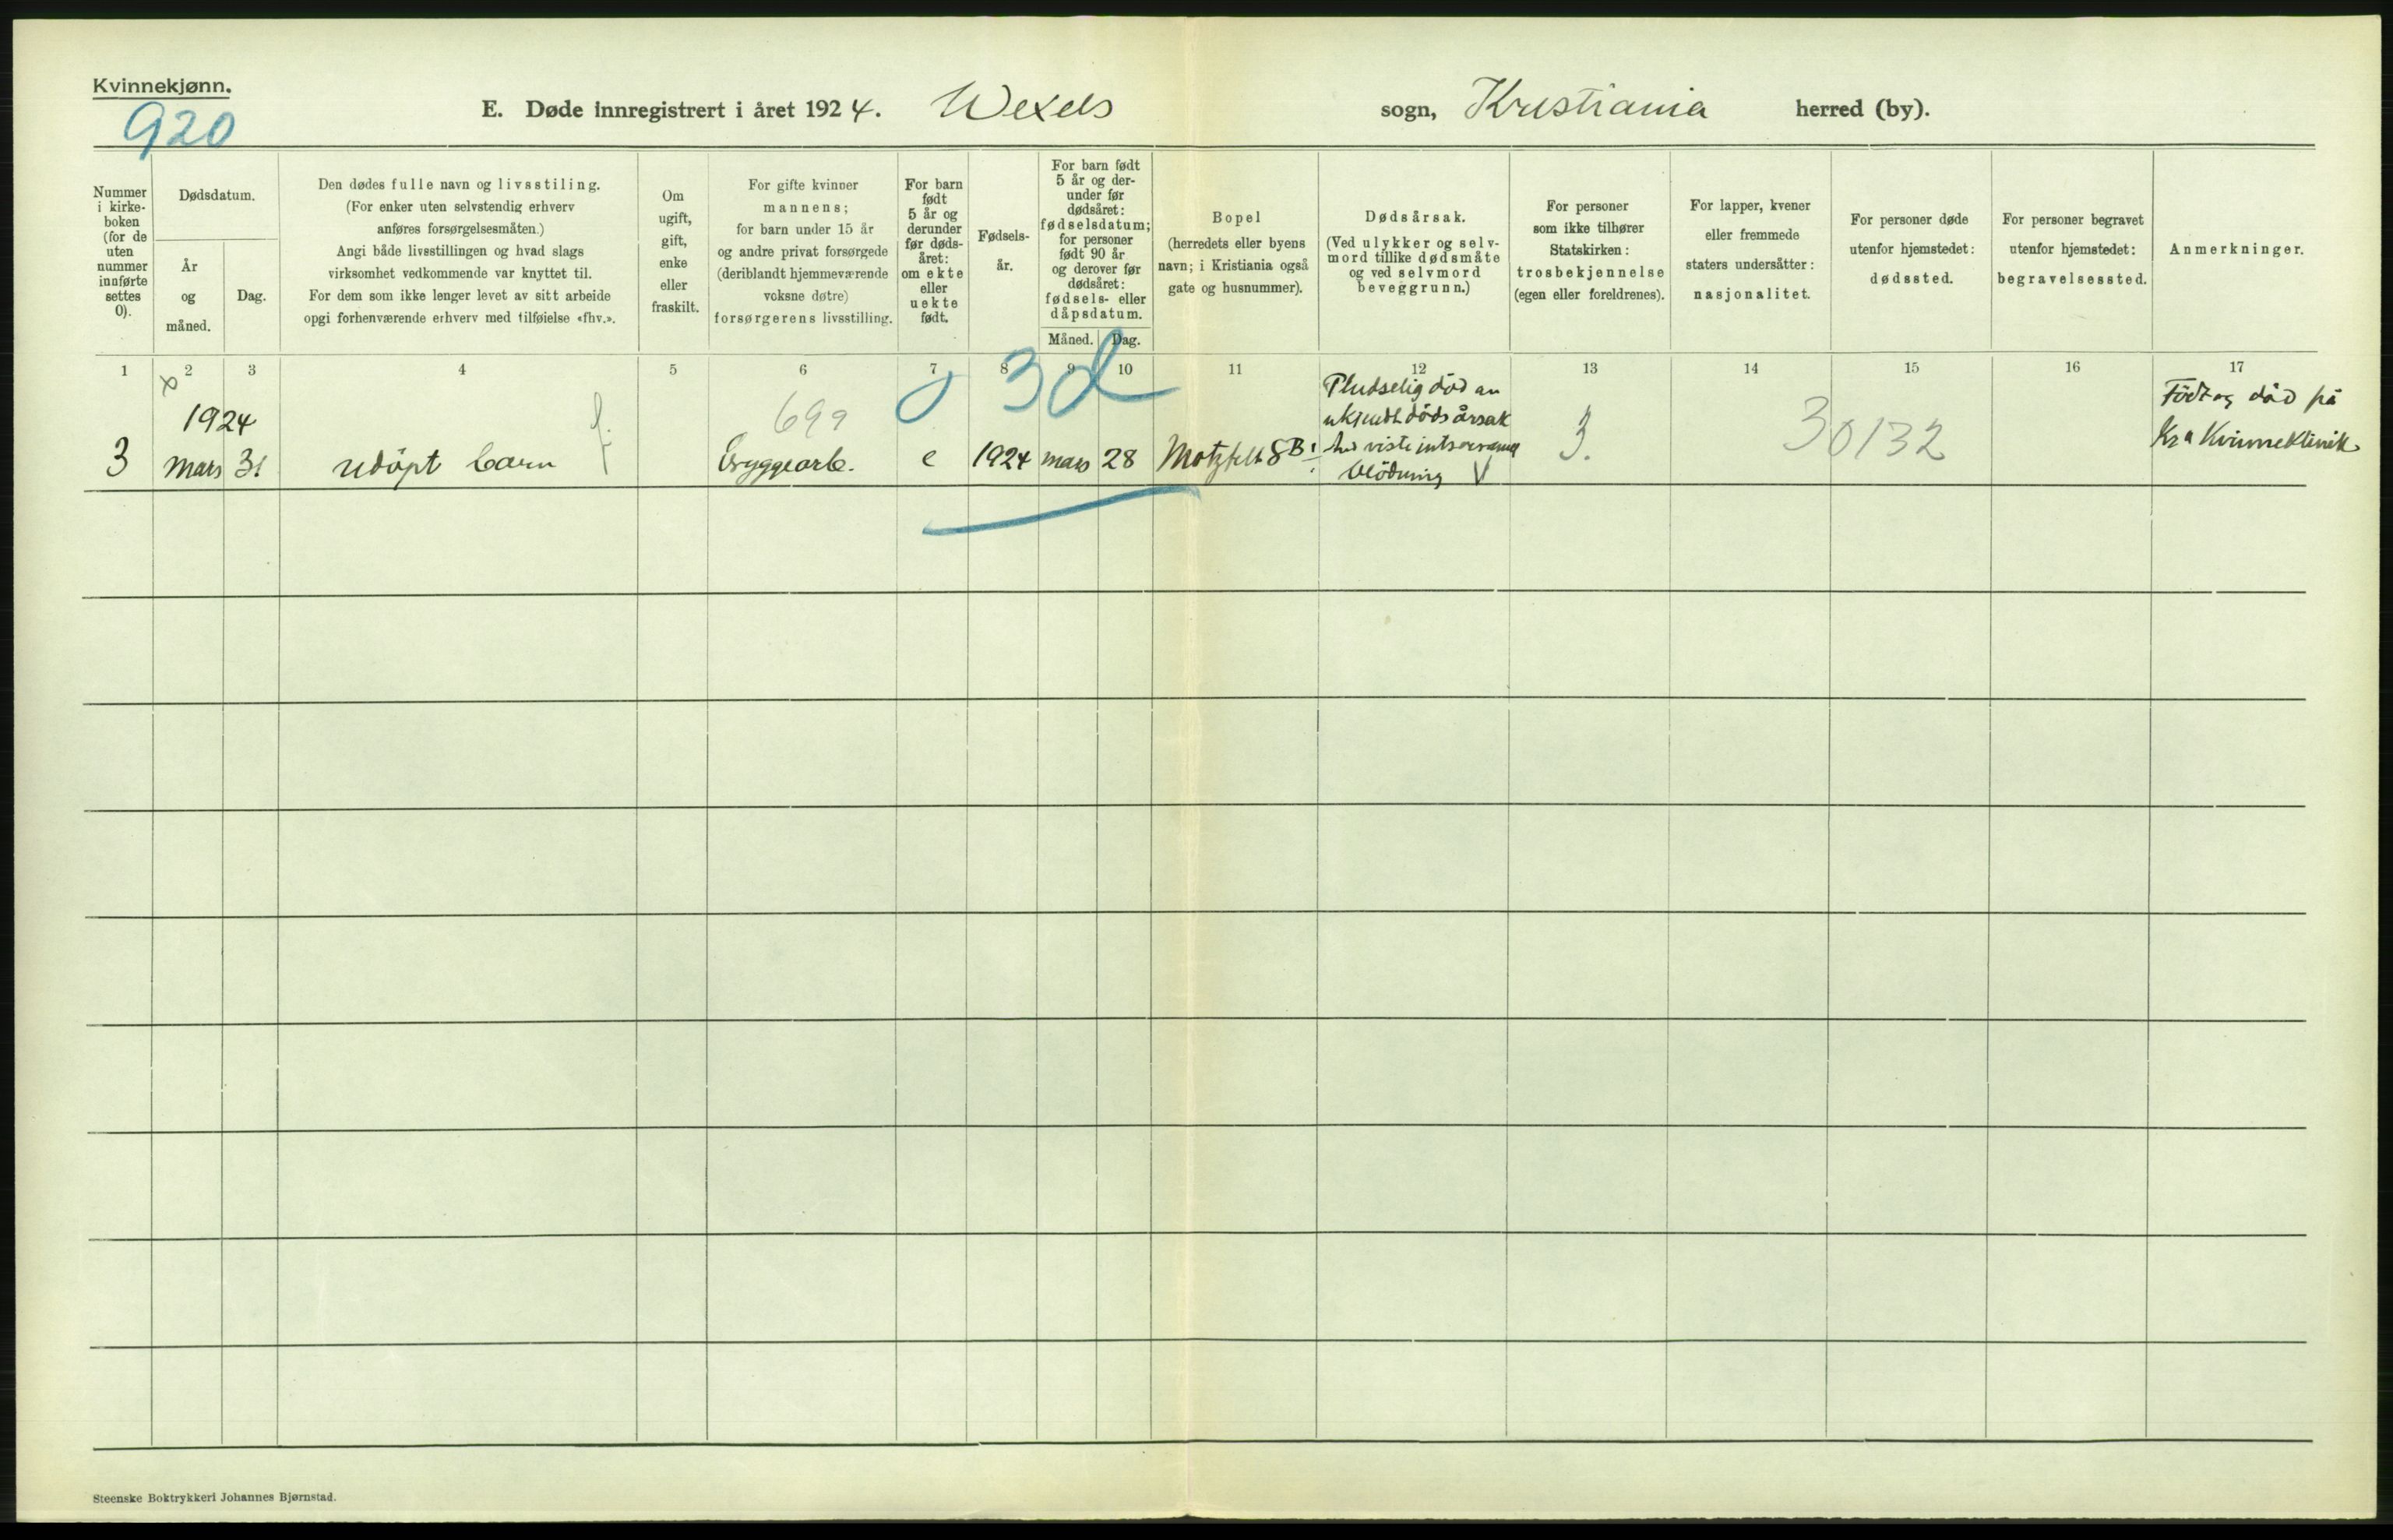 Kvinnekjønn.
920
E. Døde innregistrert i året 1924. Wexels sogn, Kristiania herred (by).
Nummer
i kirke-
boken
(for de
uten
nummer
innførte
settes
0).
Dødsdatum.
År
og
måned.
Dag.
Den dødes fulle navn og livsstiling.
(For enker uten selvstendig erhverv
anføres forsørgelsesmåten.)
Angi både livsstillingen og hvad slags
virksomhet vedkommende var knyttet til.
For dem som ikke lenger levet av sitt arbeide
opgi forhenværende erhverv med tilføielse «fhv.».
Om
ugift,
gift,
enke
eller
fraskilt.
For gifte kvinner
mannens;
for barn under 15 år
og andre privat forsørgede
(deriblandt hjemmeværende
voksne døtre)
forsørgerens livsstilling.
For barn
født
5 år og
derunder
før døds-
året:
om ekte
eller
uekte
født.
Fødsels-
år.
For barn født
5 år og der-
under før
dødsåret:
fødselsdatum;
for personer
født 90 år
og derover før
dødsåret:
fødsels- eller
dåpsdatum.
Måned. Dag.
Bopel
(herredets eller byens
navn; i Kristiania også
gate og husnummer).
Dødsårsak.
(Ved ulykker og selv-
mord tillike dødsmåte
og ved selvmord
beveggrunn.)
For personer
som ikke tilhører
Statskirken:
trosbekjennelse
(egen eller foreldrenes).
For lapper, kvener
eller fremmede
staters undersåtter:
nasjonalitet.
For personer døde
utenfor hjemstedet:
dødssted.
For personer begravet
utenfor hjemstedet:
begravelsessted.
Anmerkninger.
1 2 3 4 5 6 7 8 9 10 11 12 13 14 15 16 17
3d
x
1924
f.
699
3 mars 31 udöpt barn
Bryggearb.
e 1924 mars 28 Motzfelt 8B
Pludselig död an
ukjendt dödsårsak
blödning V
3.
30132
Född og död på
Kra Kvinneklinik
Steenske Boktrykkeri Johannes Bjørnstad.